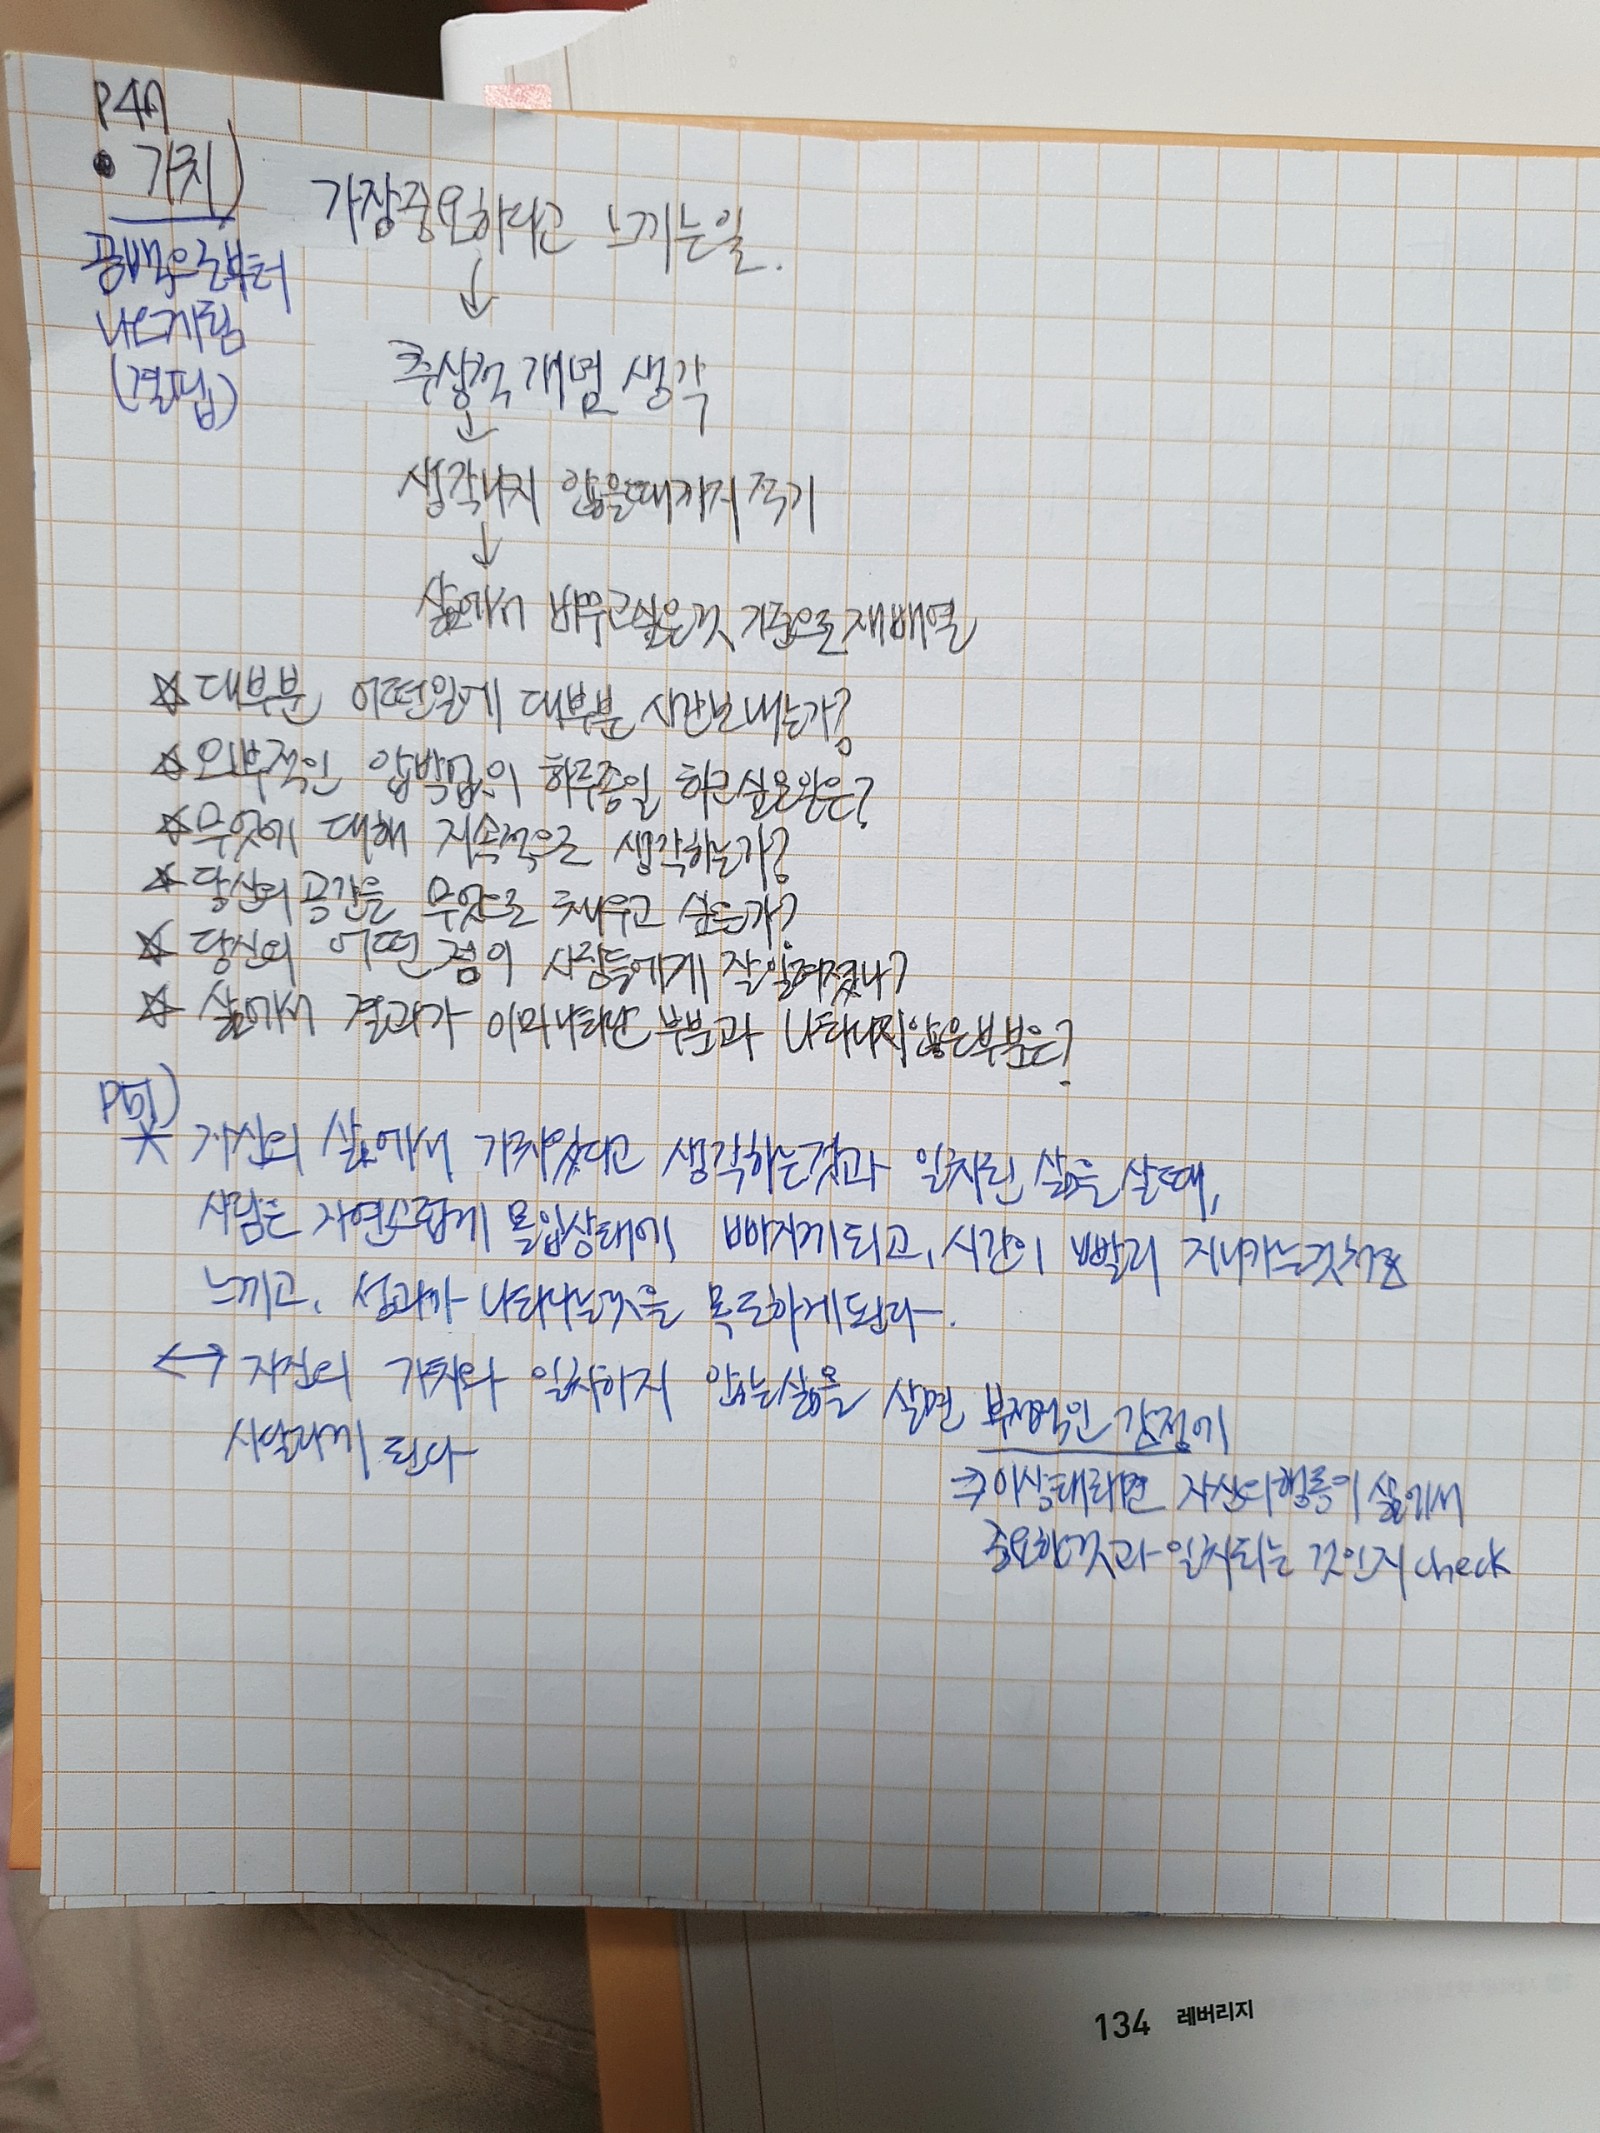 P47
• 가치)
가장중요하다고 느끼는일.
공백으로부터
나오게됨
(결핍)
↓
추상적 개념 생각
↓
생각나지 않을때까지 적기
↓
삶에서 바꾸고싶은것 기준으로 재배열
☆ 대부분 어떤일에 대부분 시간보내는가?
☆ 외부적인 압박없이 하루종일 하고싶은
☆ 무엇에 대해 지속적으로 생각하는가?
☆ 당신의 공간을 무엇으로 채우고 싶은가?
☆ 당신의 어떤 점이 사람들에게 잘알려졌나?
☆ 삶에서 결과가 이미나타난 부분과 나타나지않은부분은?
* 자신의 삶에서 가치있다고 생각하는것과 일치된 삶을 살때,
사람은 자연스럽게 몰입상태에 빠지게되고, 시간이 빨리 지나가는것처럼
느끼고, 성과가 나타나는것을 목도하게된다.
↔ 자신의 가치와 일치하지 않는삶을 살면 부정적인 감정에
시달리게 된다
→ 이상태라면 자신의행동이 삶에서
중요한것과 일치되는 것인지 check
134 레버리지